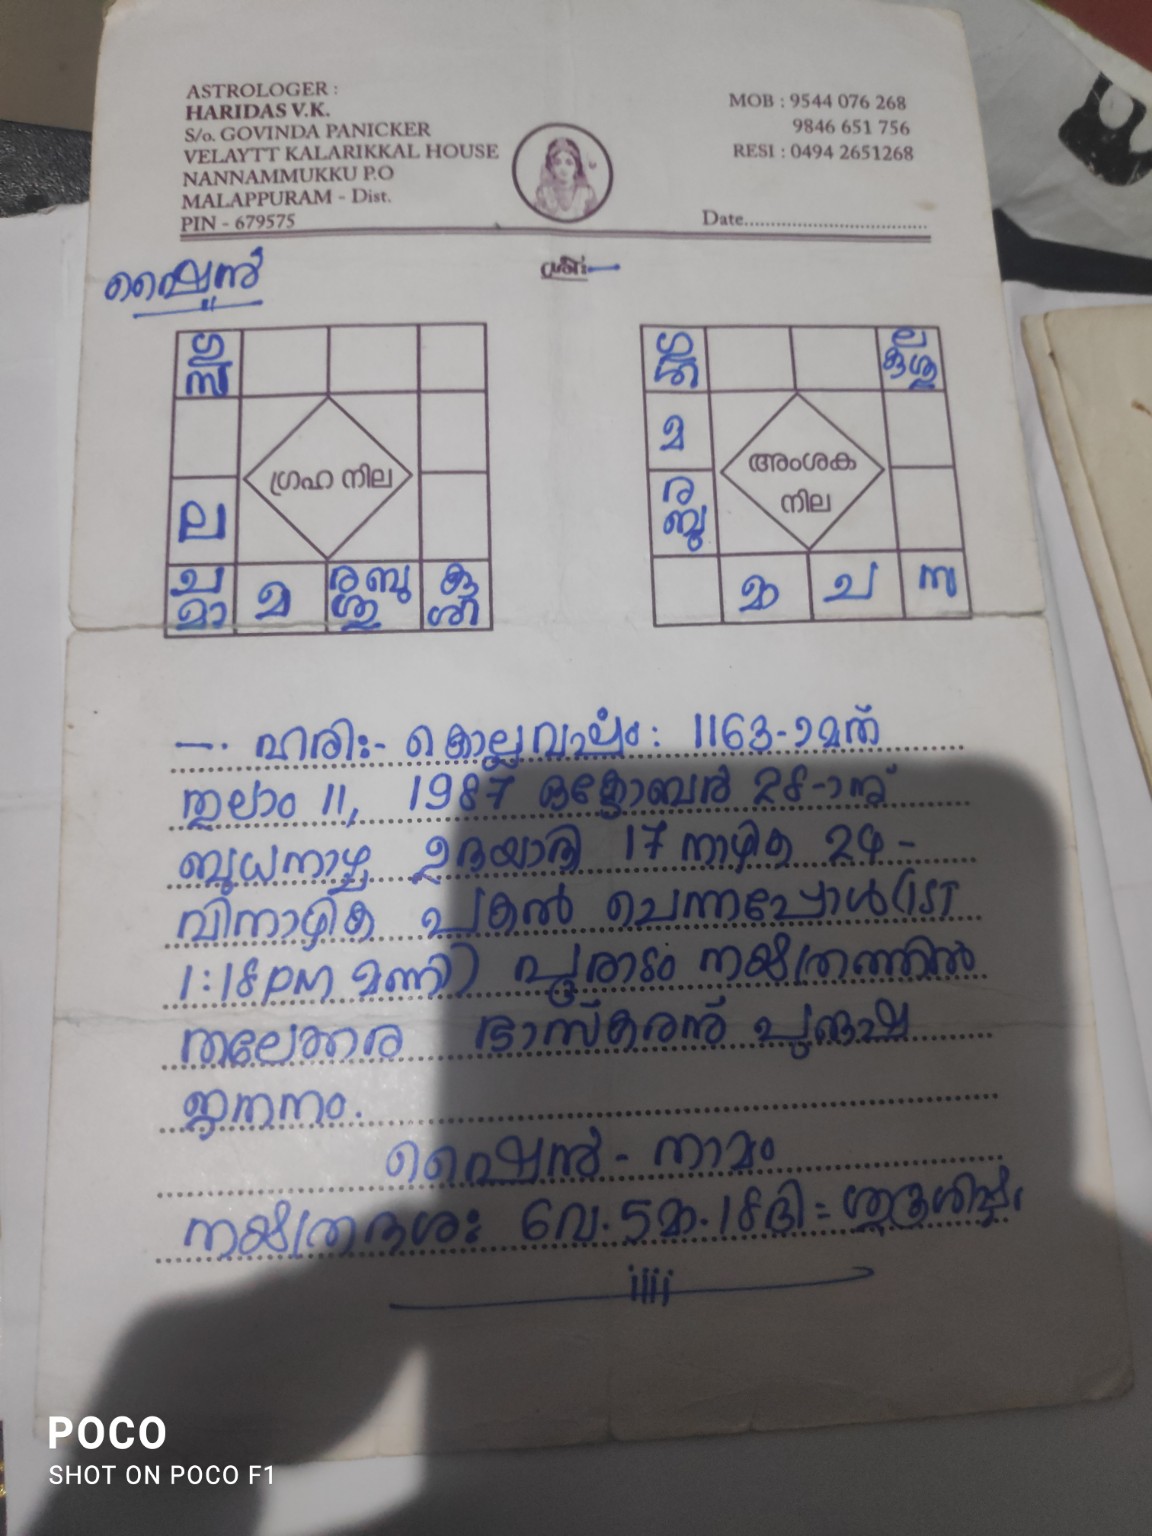 ASTROLOGER :
HARIDAS V.K.
S/o. GOVINDA PANICKER
VELAYTT KALARIKKAL HOUSE
NANNAMMUKKU P.O
MALAPPURAM - Dist.
PIN - 679575
MOB : 9544 076 268
9846 651 756
RESI : 0494 2651268
Date
ഷൈൻ
ശ്രീഃ
ഗു
സ
ല
ച
മാ
മ
ര ബു
ശു
കു
ഗ്രഹ നില
ല
കു ശു
മ
ര
ബു
മാ
ച
സ
അംശക
നില
ഹരിഃ- കൊല്ലവർഷം : 1163-ാമത്
തുലാം 11, 1987 ഒക്ടോബർ 28-ാന്
ബുധനാഴ്ച ഉദയാദി 17 നാഴിക 24 -
വിനാഴിക പകൽ ചെന്നപ്പോൾ (IST
1:18 PM മണി) പൂരാടം നക്ഷത്രത്തിൽ
ഭാസ്കരന് പുരുഷ
ജനനം.
ഷൈൻ - നാമം
നക്ഷത്രദശഃ 6വ. 5മാ. 18ദി =